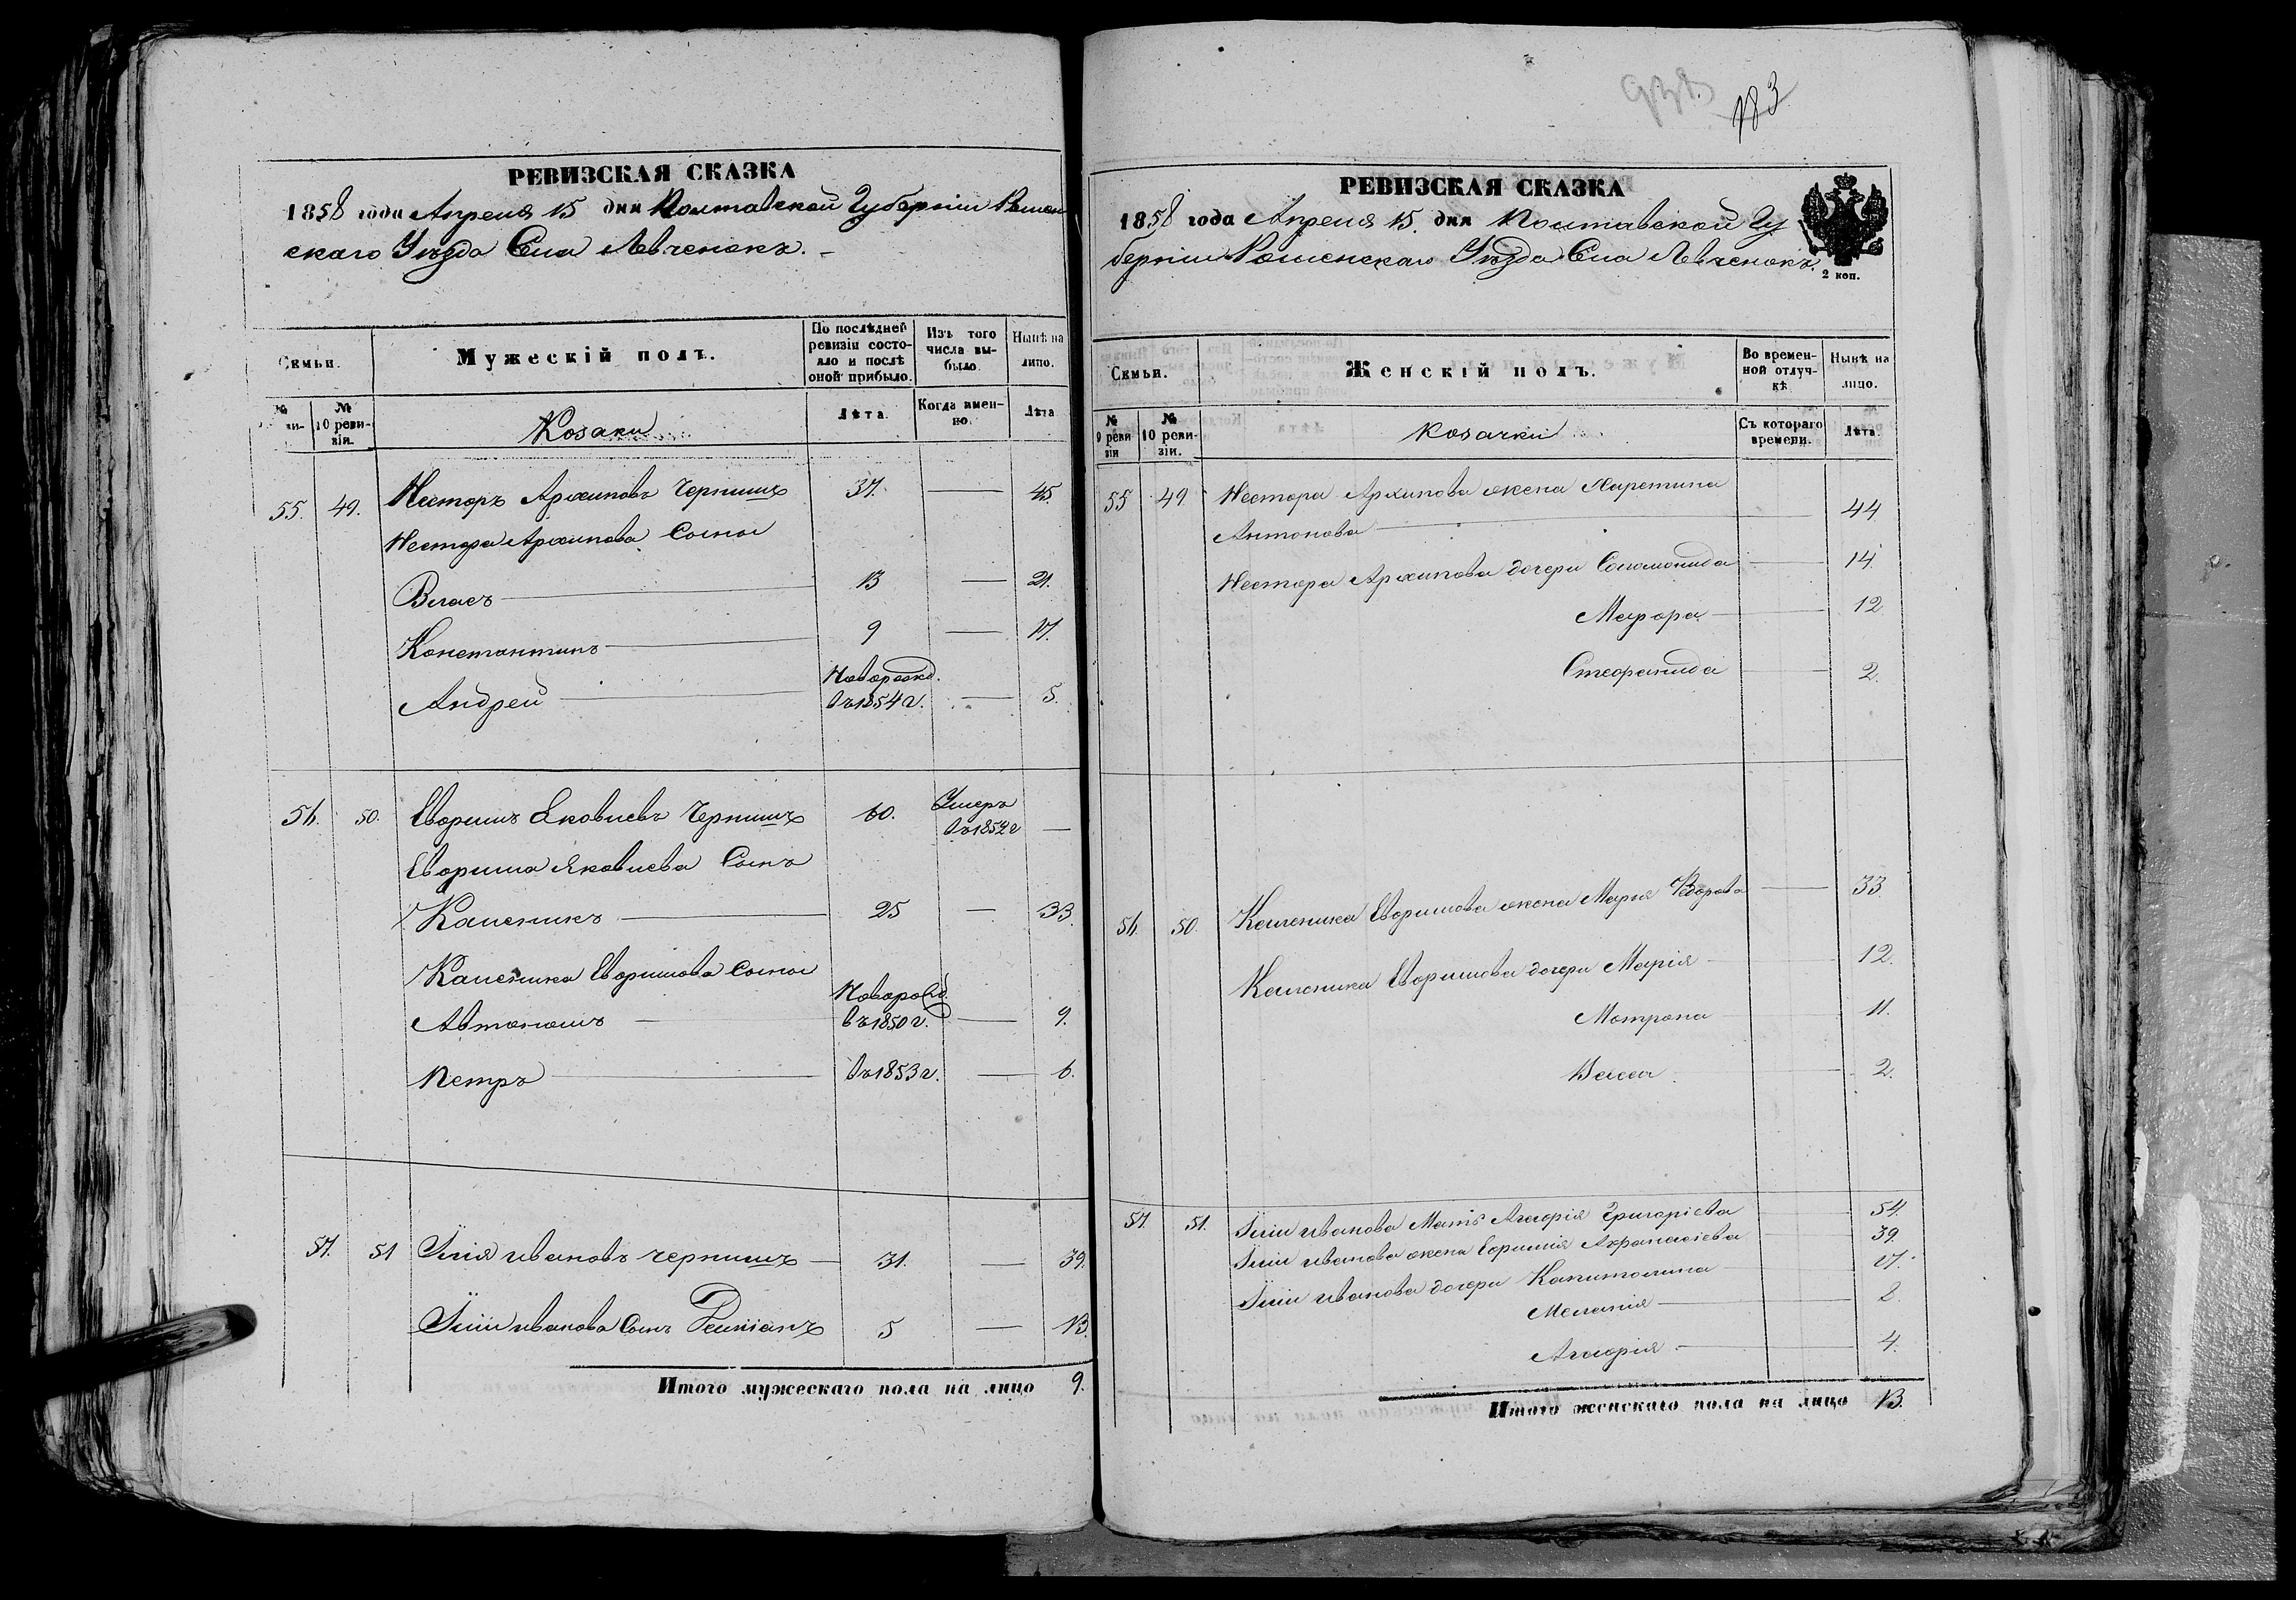 183
РЕВИЗСКАЯ СКАЗКА
1858 года Апреля 15 дня Полтавской Губернiи Ромен
скаго Уѣзда Села Левченокъ.
Семьи.
Мужескій полъ.
По послѣдней ревизіи состояло и послѣ оной прибыло.
Изъ того числа выбыло.
Нынѣ на лицо.
№
№ 10 ревизіи.
Козаки
Лѣта.
Когда именно.
Лѣта
55. 49. Несторъ Архиповъ Чернишъ 37. — 45.
Нестора Архипова Сыны
Власъ 13 — 21.
Константинъ 9 — 17.
Андрей Новорожд. въ 1854 г. — 5.
56. 50. Евфимъ Яковлевъ Чернишъ 60. Умеръ въ 1852 г —
Евфима Яковлева Сынъ
Каленикъ 25 — 33.
Каленика Евфимова Сыны
Автономъ Новорожд. въ 1850 г. — 9.
Петръ въ 1853 г. — 6.
57. 51 Илія Ивановъ Чернишъ 31. — 39.
Иліи Иванова Сынъ 5 — 13.
Итого мужескаго пола на лицо 9.
РЕВИЗСКАЯ СКАЗКА
1858 года Апреля 15. дня Полтавской Гу
бернiи Роменскаго Уѣзда Села Левченокъ.
2 коп.
Семьи.
Женскій полъ.
Во временной отлучкѣ
Нынѣ на лицо.
№ 9 ревизіи
№ 10 ревизіи.
Козачки
Съ котораго времени.
Лѣта.
55 49. Нестора Архипова жена Харетина
Антонова — 44
Нестора Архипова дочери Соломонида — 14.
Мавра — 12
Стефанида — 2.
56. 50. Каленика Евфимова жена Марья — 33.
Каленика Евфимова дочери Марія — 12.
Мотрона — 11.
Васса — 2.
57. 51. Иліи Иванова Мать Агафія Григоріева 54.
Иліи Иванова жена Ефимія Афанасіева 39
Иліи Иванова дочери Капитолина 17.
Меланія — 8.
Агафія — 4.
Итого женскаго пола на лицо 13.